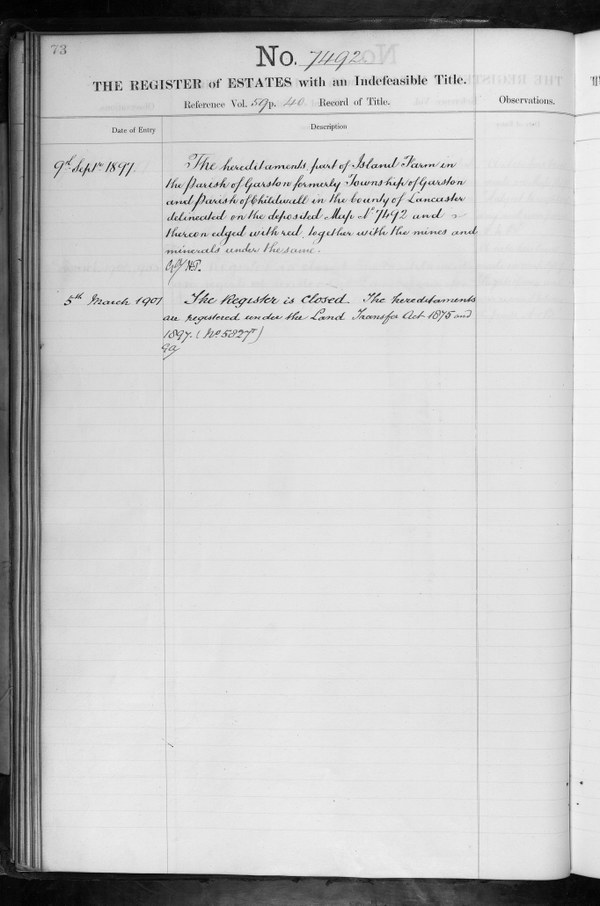 73
No. 7492
THE REGISTER of ESTATES with an Indefeasible Title.
Reference Vol. 59 p. 40 Record of Title.
Observations.
Date of Entry
Description
9th Septr 1897.
The hereditaments part of Island Farm in
the Parish of Garston formerly Township of Garston
and Parish of Childwall in the County of Lancaster
delineated on the deposited Map No 7492 and
thereon edged with red, together with the mines and
minerals under the same.
5th March 1901
The Register is closed. The hereditaments
are registered under the Land Transfer Act 1875 and
1897. (No 5827)